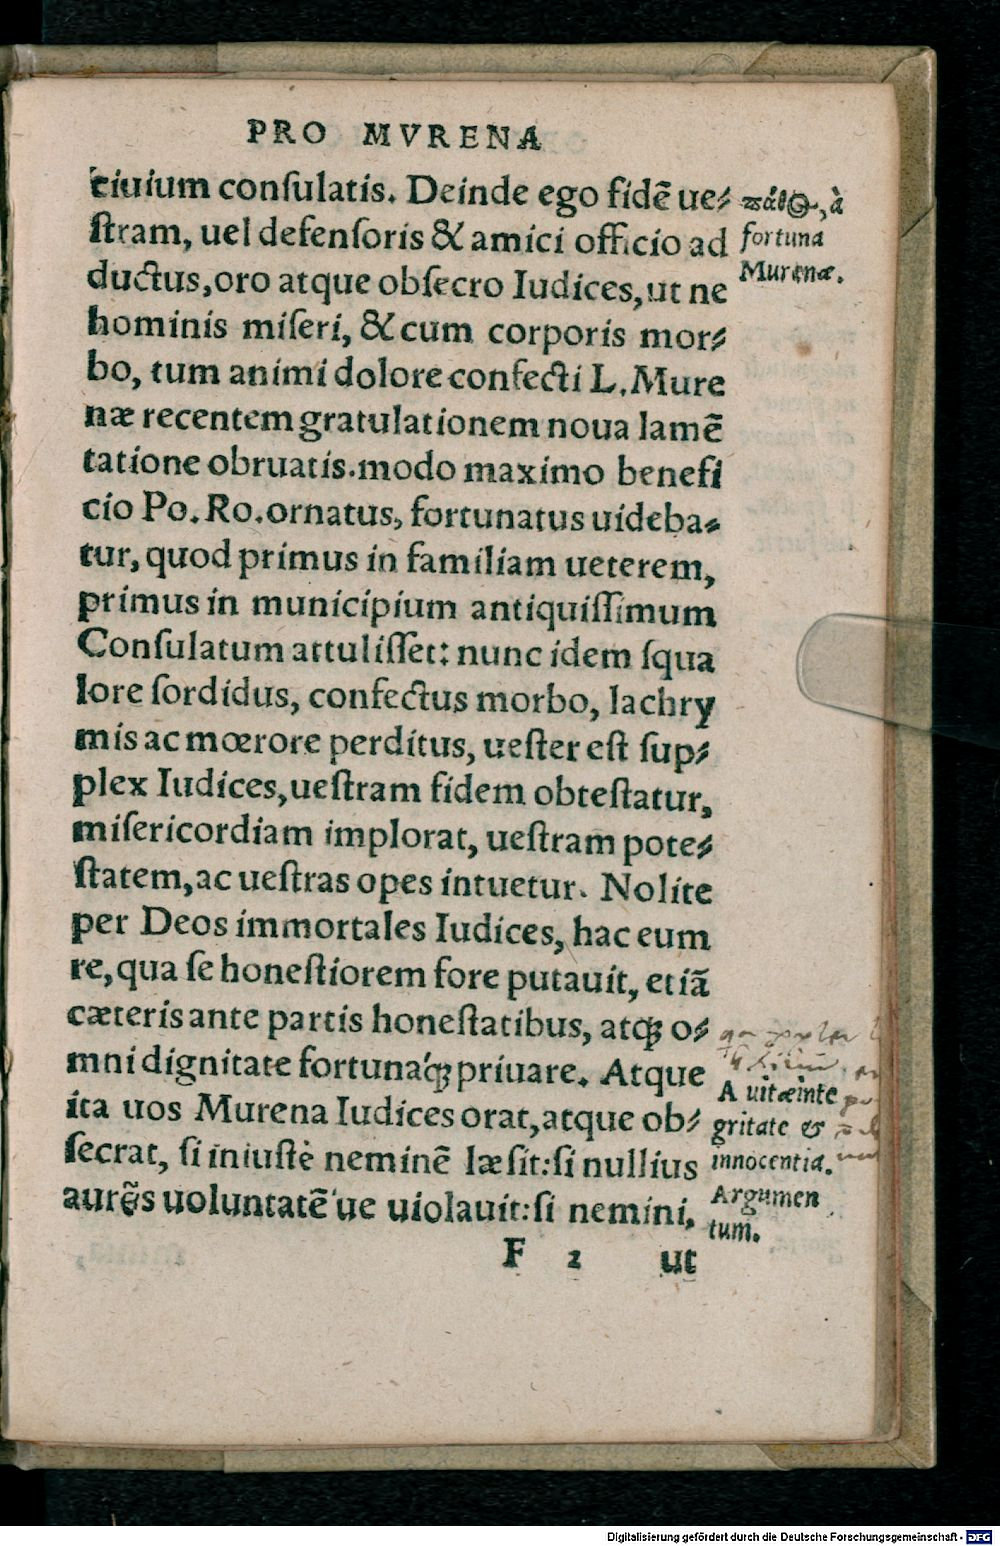 PRO MVRENA
ciuium conſulatis. Deinde ego fidẽ ue⸗
ſtram, uel defenſoris & amici officio ad
ductus, oro atque obſecro Iudices, ut ne
hominis miſeri, & cum corporis mor⸗
bo, tum animi dolore confecti L. Mure
næ recentem gratulationem noua lamẽ
tatione obruatis. modo maximo benefi
cio Po. Ro. ornatus, fortunatus uideba⸗
tur, quod primus in familiam ueterem,
primus in municipium antiquiſſimum
Conſulatum attuliſſet: nunc idem ſqua
lore ſordidus, confectus morbo, lachry
mis ac mœrore perditus, ueſter eſt ſup⸗
plex Iudices, ueſtram fidem obteſtatur,
miſericordiam implorat, ueſtram pote⸗
ſtatem, ac ueſtras opes intuetur. Nolite
per Deos immortales Iudices, hac eum
re, qua ſe honeſtiorem fore putauit, etiã
cæteris ante partis honeſtatibus, atq; o⸗
mni dignitate fortunáq; priuare. Atque
ita uos Murena Iudices orat, atque ob⸗
ſecrat, ſi iniuſtè neminẽ læſit: ſi nullius
aurẽs uoluntatẽ ue uiolauit: ſi nemini,
F 2 ut
πάθος, à
fortuna
Murenæ.
A uitæ inte
gritate &
innocentia.
Argumen
tum.
Digitalisierung gefördert durch die Deutsche Forschungsgemeinschaft - DFG